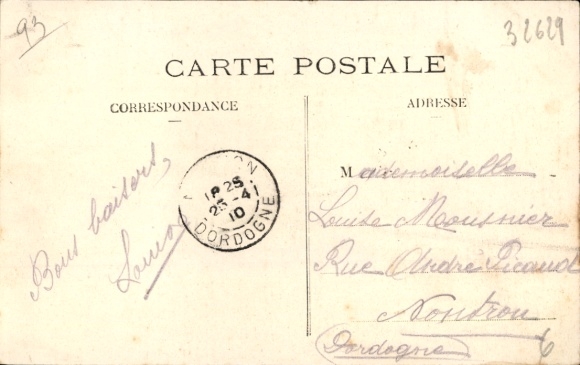 93
32629
CARTE POSTALE
CORRESPONDANCE
ADRESSE
Bons baisers,
18 25
25 - 4
10
DORDOGNE
Mademoiselle
Louise Mousnier
Rue André Picaud
Nontron
Dordogne
6